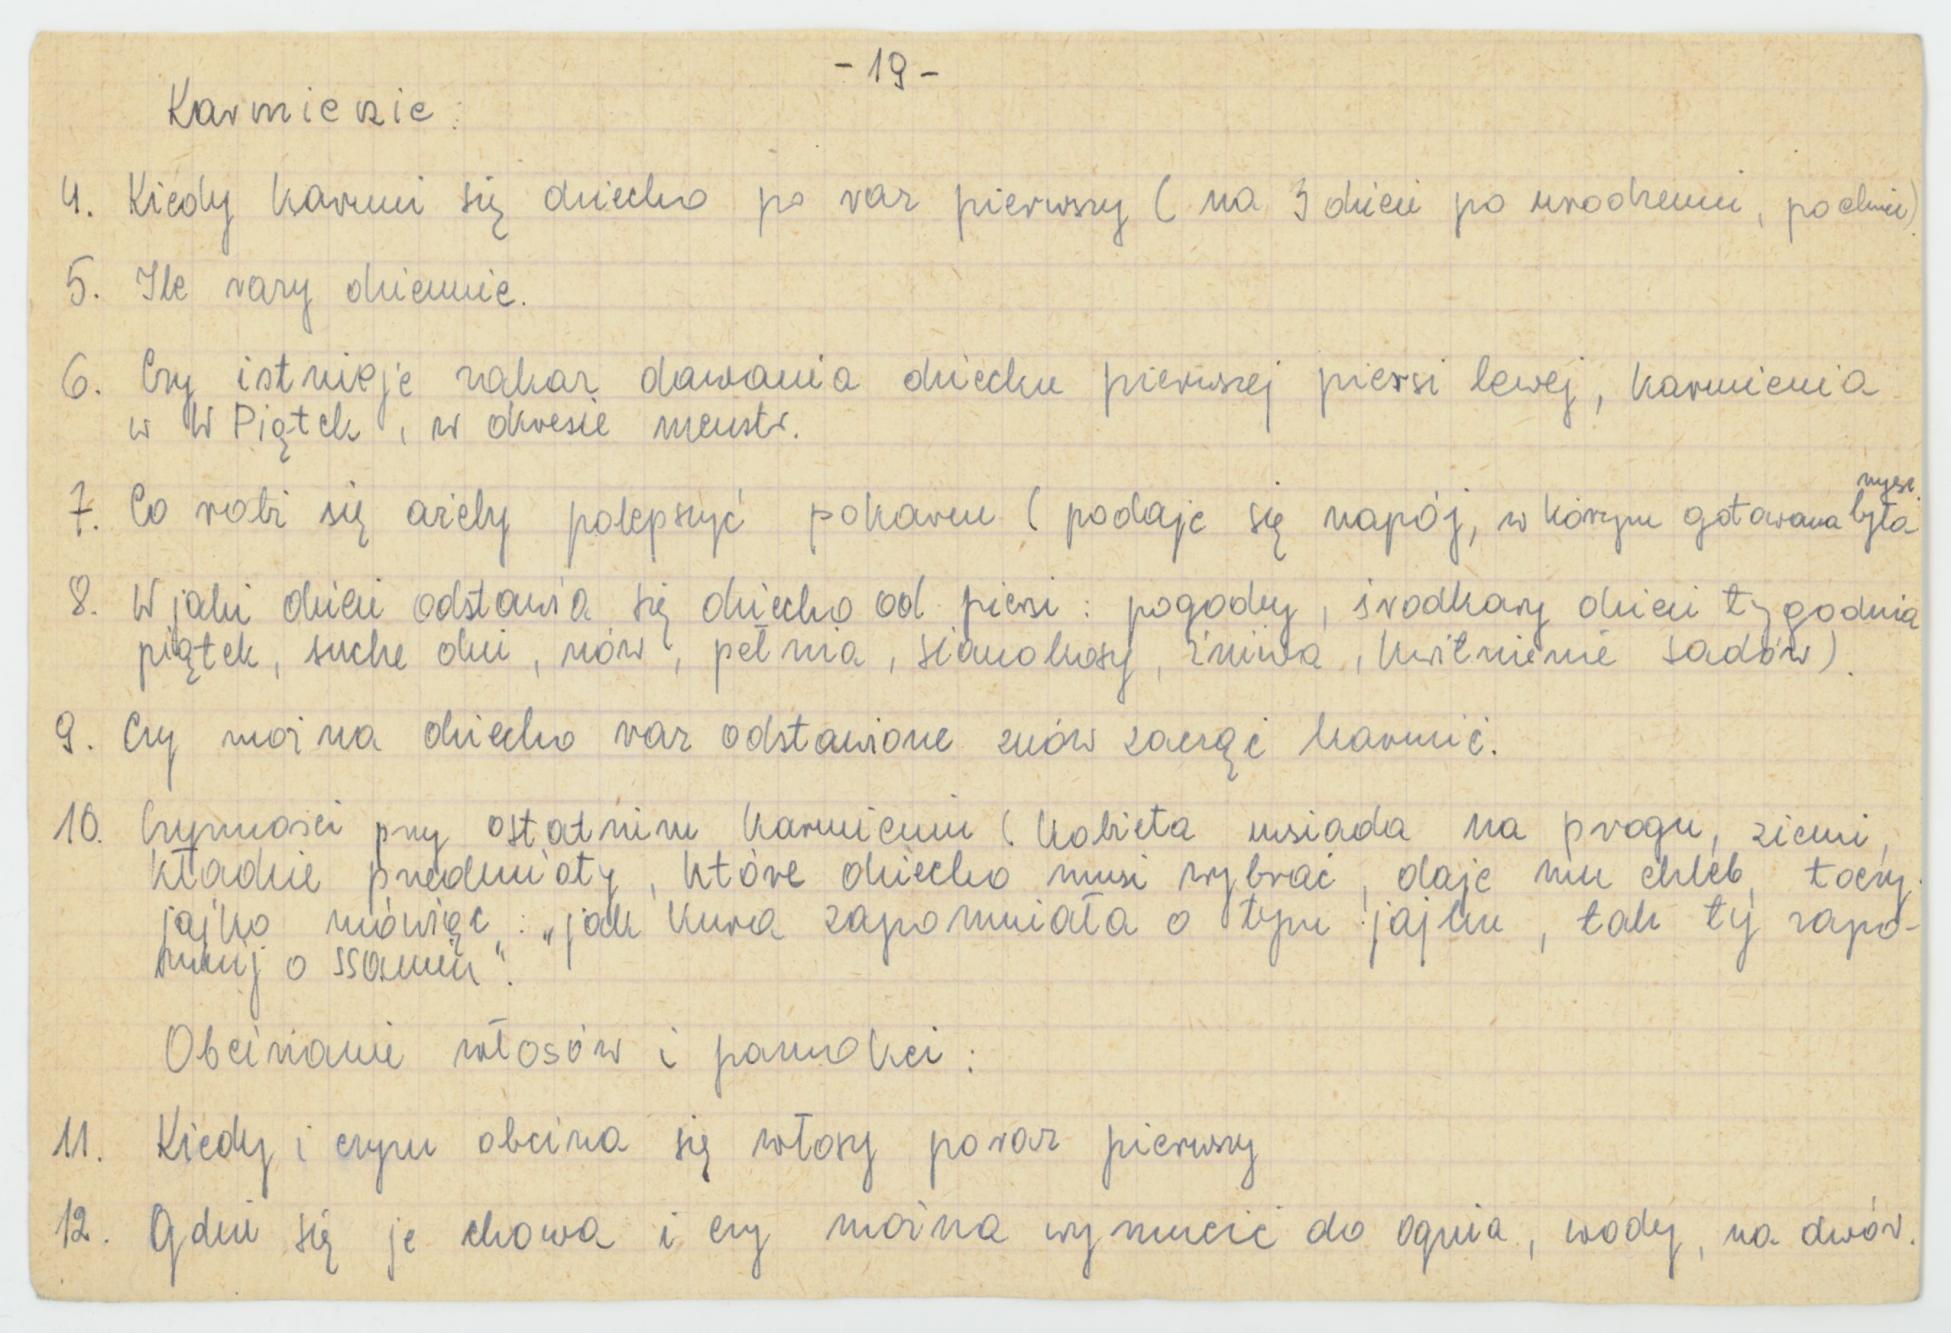 - 19 -
Karmienie:
4. Kiedy karmi się dziecko po raz pierwszy ( na 3 dzień po urodzeniu, po chrzcie)
5. Ile razy dziennie.
6. Czy istnieje zakaz dawania dziecku pierwszej piersi lewej, karmienia
w W Piątek, w okresie menstr.
7. Co robi się ażeby polepszyć pokarm ( podaje się napój, w kórym gotowana była
8. W jaki dzień odstawia się dziecko od piersi : pogodny, środkowy dzień tygodnia
piątek, suche dni, nów, pełnia, sianokosy, żniwa, kwitnienie sadów).
9. Czy można dziecko raz odstawione znów zacząć karmić.
10. Czynności przy ostatnim karmieniu ( kobieta usiada na progu, ziemi,
kładzie przedmioty, które dziecko musi wybrać, daje mu chleb, toczy
jajko mówiąc : „jak kura zapomniała o tym jajku, tak ty zapo-
mnij o ssaniu".
Obcinanie włosów i paznokci :
11. Kiedy i czym obcina się włosy poraz pierwszy
12. Gdzie się je chowa i czy można wyrzucić do ognia, wody, na dwór.